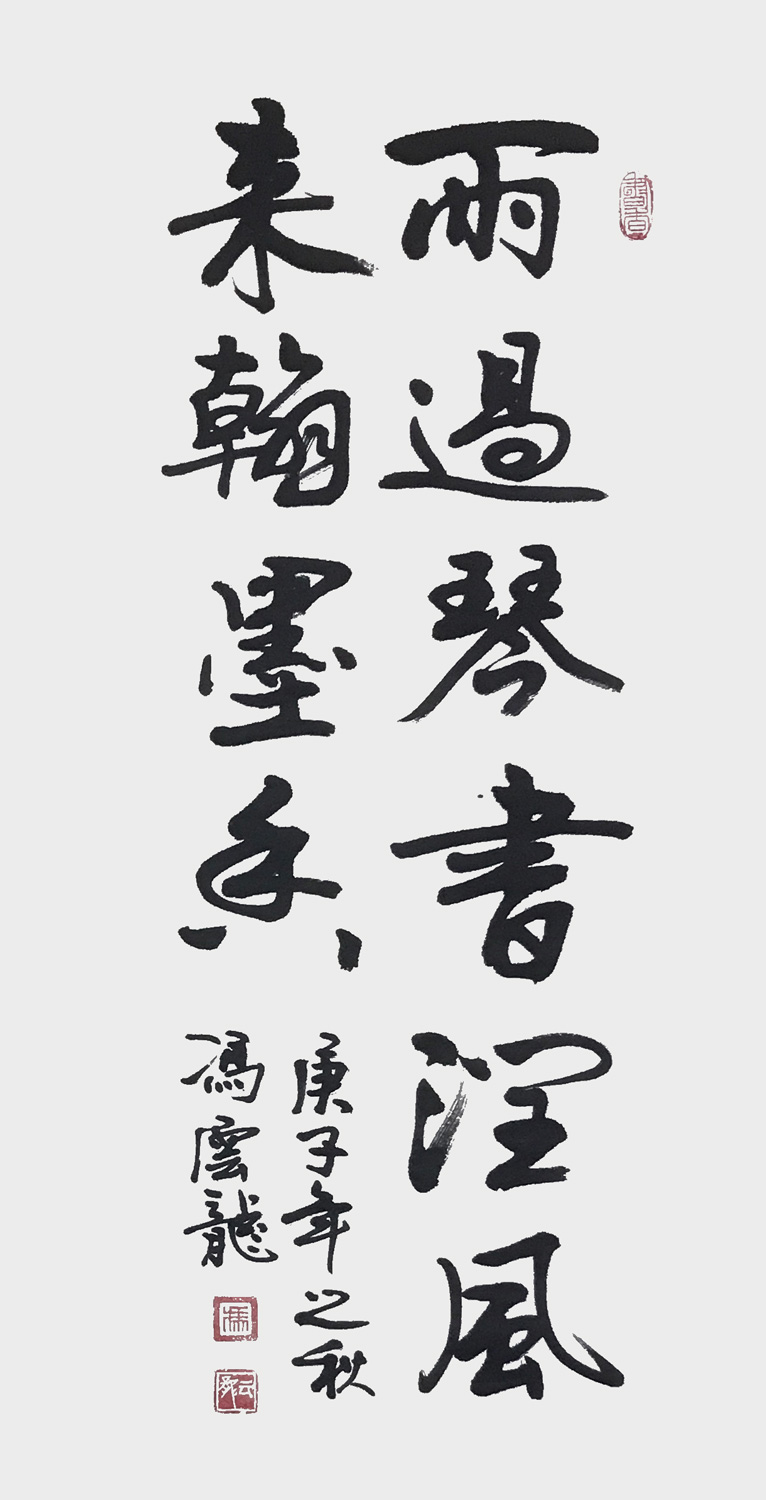 雨過琴書潤風
来翰墨香
庚子年之秋
馮雲龍